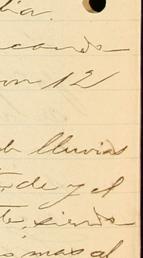 ia.
con 12
lluvias
de y el
te, siendo
mas al